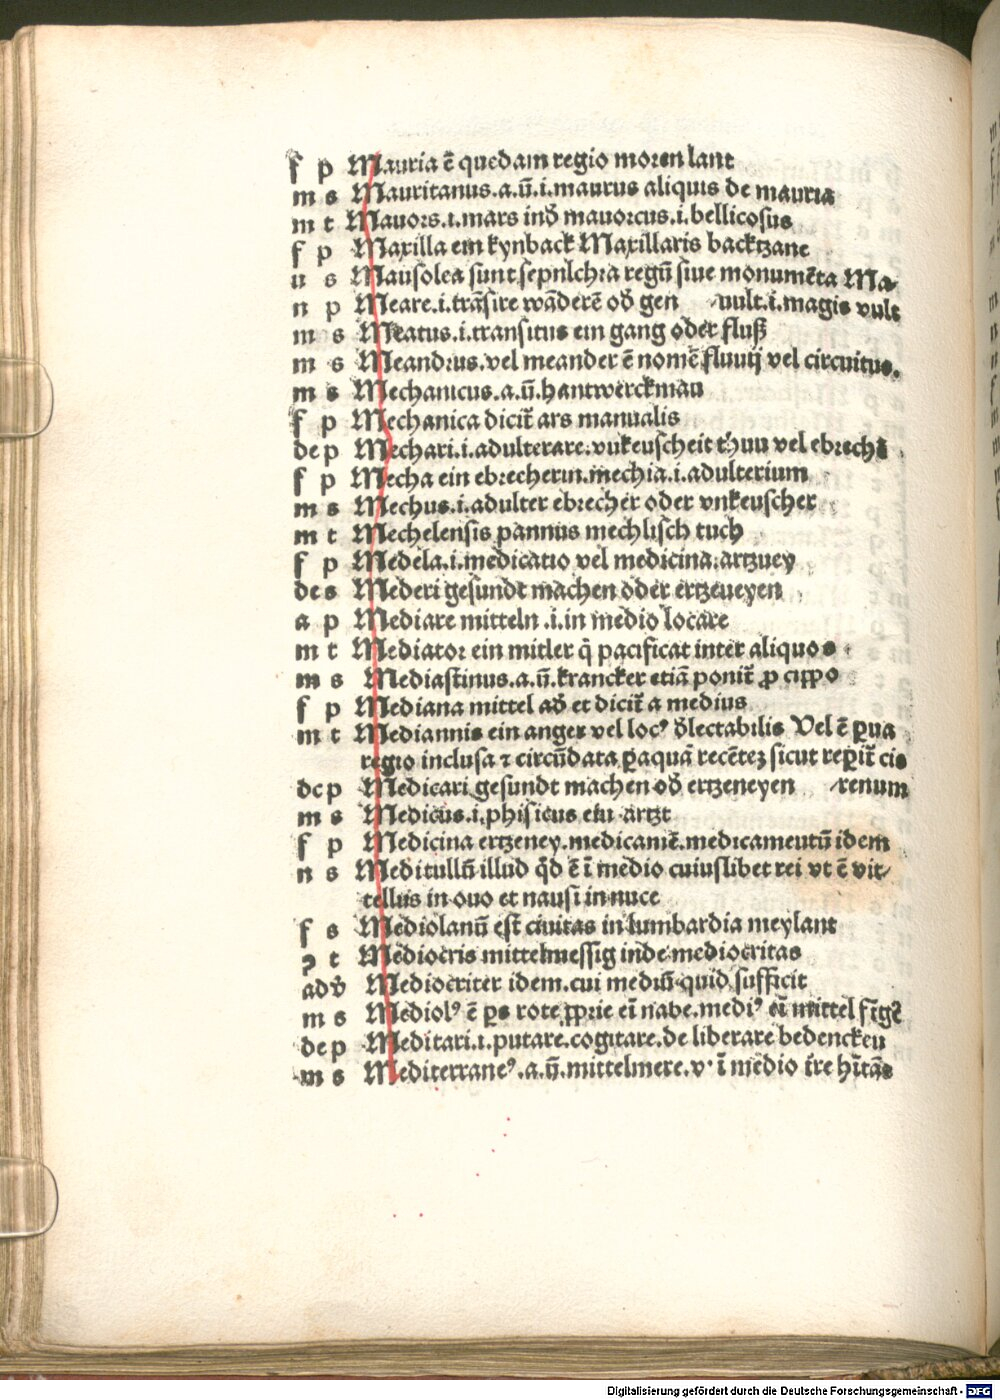 f p Mauria ē quedam regio moren lant
m s Mauritanus.a.ū.i.maurus aliquis de mauria
m t Mauors.i.mars inđ mauorcus.i.bellicosus
f p Maxilla ein kynback Maxillaris backtzane
u s Mausolea sunt sepulchra regū siue monumēta Ma-
n p Meare.i.trāsire wāderē ođ gen uult.i.magis vult
m s Meatus.i.transitus ein gang oder fluß
m s Meandrus.vel meander ē nomē fluuij vel circuitus.
m s Mechanicus.a.ū.hantwerckman
f p Mechanica dicit̄ ars manualis
de p Mechari.i.adulterare.vnkeuscheit thuu vel ebrechē
f p Mecha ein ebrecherin.mechia.i.adulterium
m s Mechus.i.adulter ebrecher oder vnkeuscher
m t Mechelensis pannus mechlisch tuch
f p Medela.i.medicatio vel medicina.artzney
de s Mederi gesundt machen oder ertzeneyen
a p Mediare mitteln .i.in medio locare
m t Mediator ein mitler q̄ pacificat inter aliquos
m s Mediastinus.a.ū.krancker etiā ponit̄ ꝓ cippo
f p Mediana mittel ađ et dicit̄ a medius
m t Mediannis ein anger vel locꝰ đlectabilis Vel ē ꝑua
regio inclusa ⁊ circūdata ꝑaquā recētez sicut reꝑit̄ cis
de p Medicari gesundt machen ođ ertzeneyen renum
m s Medicus.i.phisicus ein artzt
f p Medicina ertzeney.medicamē.medicamentū idem
n s Meditulliū illud q̄d ē ī medio cuiuslibet rei vt ē vit-
tellus in ouo et nausi in nuce
f s Mediolanū est civitas in lumbardia meylant
ꝯ t Mediocris mittelmessig inde mediocritas
adv̄ Mediocriter idem.cui mediū quid sufficit
m s Mediolꝰ ē ꝑs rote ꝓprie eī nabe.mediꝰ eī mittel fīg̃
de p Meditari.i.putare.cogitare.de liberare bedencken
m s Mediterraneꝰ.a.ū.mittelmere.v. ī medio t̄re hītās
Digitalisierung gefördert durch die Deutsche Forschungsgemeinschaft - DFG